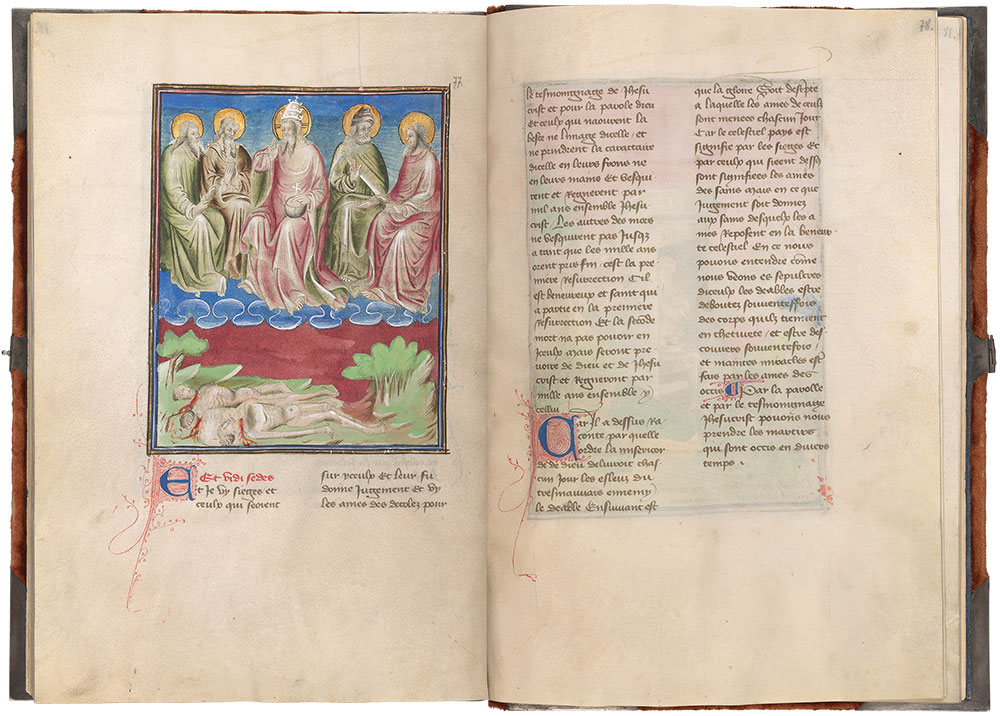 77.
Et vidi sedes
Et Je vy sieges et
ceulx qui seoient
sur yceulx Et leur fu
donne Jugement Et vy
les ames des decolez pour
78.
81.
le tesmoingnaige de Jhesu
crist et pour la parole dieu
Et ceulx qui naourent la
beste ne limage dicelle et
ne prindrent la caractaire
dicelle en leurs frons ne
en leurs mains Et vesqui
rent et Regnerent par
mil ans ensemble Jhesu
crist Les autres des mors
ne vesquirent pas Jusqz
a tant que les mille ans
orent pris fin cest la pre
miere Resurrection Cil
est beneureux et saint qui
a partie en la premiere
resurrection Et la seconde
mort na pas pouoir en
yceulx Mais seront pre
uoire de dieu et de Jhesu
crist Et Regneront par
mille ans ensemble y
cellui
Car il a dessus Ra
conte par quelle
ordre la misericor
de de dieu deliuroit chas
cun Jour les esleuz du
tresmauuais ennemy
le deable Ensuiuant est
que la gloire soit descpte
a laquelle les ames de ceulx
sont menees chascun Jour
Car le celestiel pays est
signifie par les sieges et
par ceulx qui sieent dessus
sont signifiees les ames
des sains Mais en ce que
Jugement soit donnez
aux sains desquelx les a
mes Reposent en la beneur
te celestiel En ce nous
pouons entendre come
nous veons es sepulcres
diceulx les deables estre
deboutez souuenteffois
des corps quilz tiennent
en chetiuete et estre des
couuers souuentefois
et maintes miracles est
fais par les ames des
occis Par la parolle
et par le tesmoingnaige
Jhesucrist pouons nous
prendre les martirs
qui sont occis en diuers
temps .